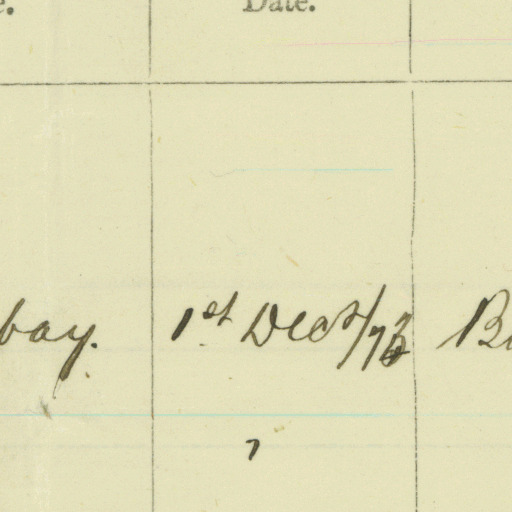 e. Date.
bay. 1st Decr/73 Bo